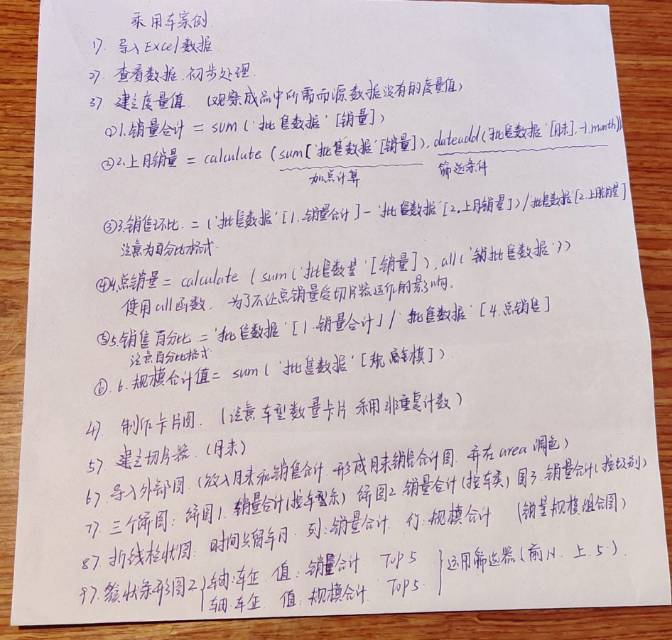 乘用车案例
1). 导入Excel数据
2). 查看数据.初步处理.
3) 建立度量值. (观察成品中所需而源数据没有的度量值)
①1.销量合计 = sum('批售数据'[销量])
②2.上月销量 = calculate (sum('批售数据'[销量]), dateadd('批售数据'[月末], -1, month))
加点计算 筛选条件
③3.销售环比 = ('批售数据'[1.销量合计] - '批售数据'[2.上月销量]) / '批售数据'[2.上月销量]
注意为百分比格式.
④4.总销量 = calculate (sum('批售数据'[销量]), all('批售数据'))
使用all函数. 为了不让总销量受切片器运作的影响.
⑤5.销售百分比 = '批售数据'[1.销量合计] / '批售数据'[4.总销售]
注意百分比格式
⑥.6.规模合计值 = sum('批售数据'[规模])
4). 制作卡片图. (注意车型数量卡片 采用非重复计数)
5) 建立切片器. (月末)
6) 导入外部图 (放入月末和销售合计 形成月末销售合计图. 并在area 调色)
7). 三个饼图: 饼图1. 销量合计(按车型系) 饼图2 销量合计(按车类) 图3. 销量合计(按级别)
8). 折线柱状图. 时间只留年月. 列:销量合计 行:规模合计 (销量规模组合图)
9). 簇状条形图2 轴:车企 值:销量合计 Top5
轴:车企 值:规模合计 Top5 运用筛选器(前N. 上.5).